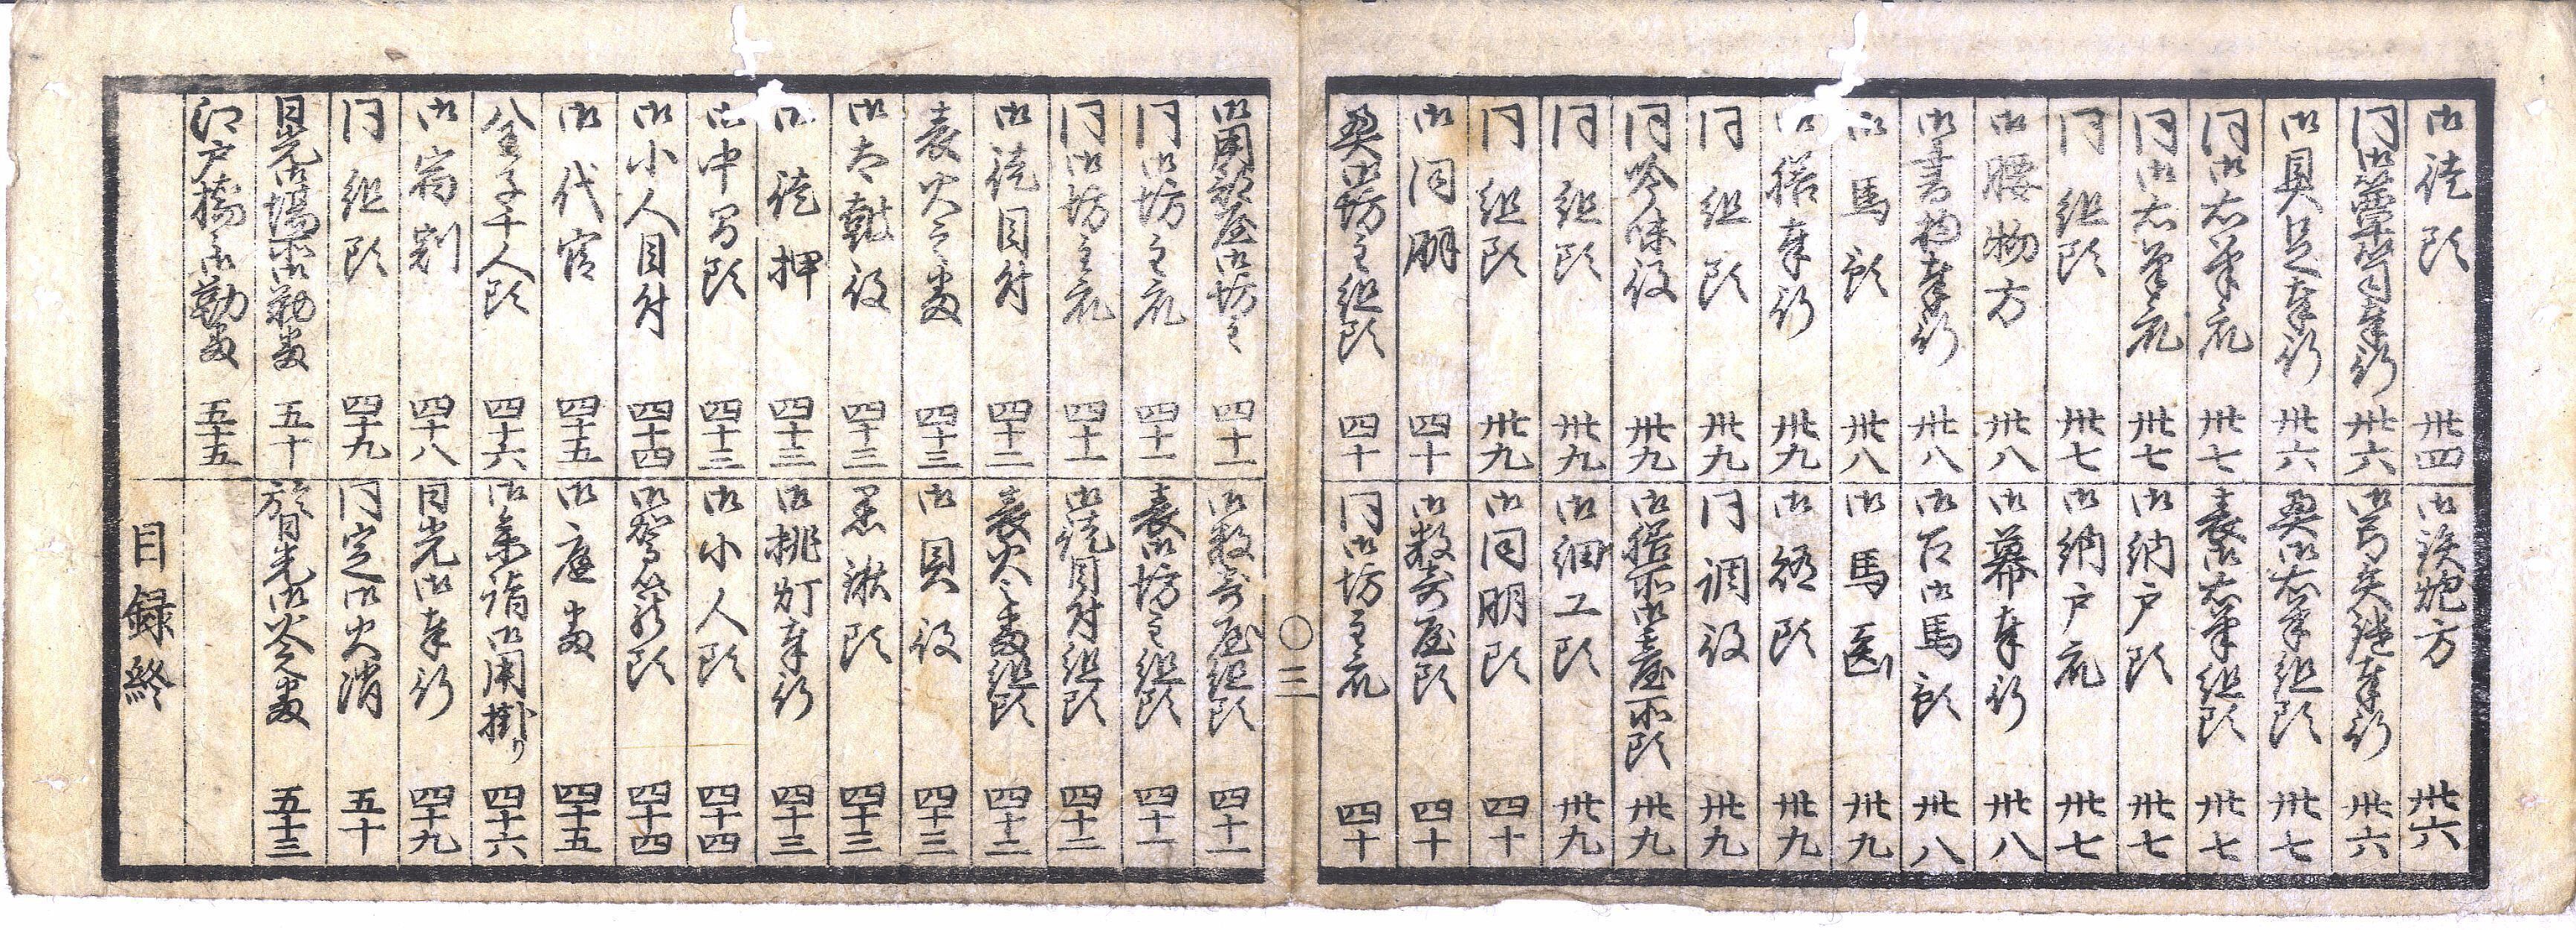 御徒頭 卅四
御鉄炮方 卅六
同御箪笥奉行 卅六
御弓矢鑓奉行 卅六
御具足奉行 卅六
奥御右筆組頭 卅七
同御右筆衆 卅七
表御右筆組頭 卅七
同御右筆衆 卅七
御納戸頭 卅七
同組頭 卅七
御納戸衆 卅七
御腰物方 卅八
御幕奉行 卅八
御書物奉行 卅八
御召御馬預 卅八
御馬預 卅八
御馬医 卅九
御膳奉行 卅九
御賄頭 卅九
同組頭 卅九
同調役 卅九
同吟味役 卅九
御膳所御臺所頭 卅九
同組頭 卅九
御細工頭 卅九
同組頭 卅九
御同朋頭 四十
御同朋 四十
御数寄屋頭 四十
奥御坊主組頭 四十
同御坊主衆 四十
〇三
御用部屋御坊主 四十一
御数寄屋組頭 四十一
同御坊主衆 四十一
表御坊主組頭 四十一
同御坊主衆 四十一
御徒目付組頭 四十二
御徒目付 四十二
表火之番組頭 四十三
表火之番 四十三
御貝役 四十三
御太鼓役 四十三
黒鍬頭 四十三
御徒押 四十三
御挑灯奉行 四十三
御中間頭 四十三
御小人頭 四十四
御小人目付 四十四
御駕籠頭 四十四
御代官 四十五
御庭番 四十五
八王子千人頭 四十六
御参詣御用掛り 四十六
御宿割 四十八
日光御奉行 四十九
同組頭 四十九
同定御火消 五十
日光御場所御勤番 五十
於日光御火之番 五十三
江戸橋々御勤番 五十五
目録終